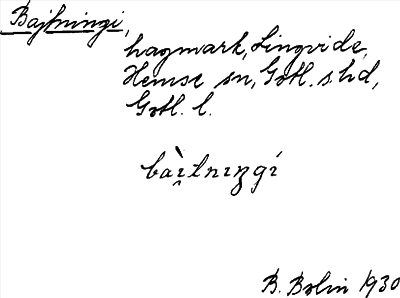 Bajtningi,
hagmark, Lingvide,
Hemse sn, Gotl. s. hd,
Gotl. l.
bài̯tnıŋgi
B. Bolin 1930